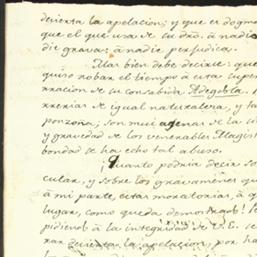 devierta la apelacion; y que es dogma
que el que usa de su dro. à nadie
die grava: à nadie perjudica.
Mas bien debe decirse: que
quiso robar el tiempo à esta super
rracion de su consabida Adegabla.
rrerias de igual naturaleza, y
ponzoña; son mui agenas de la
y gravedad de los venerables Magist
bondad se ha echo tal abuso.
Quanto podria decir so
cular, y sobre los gravamenes qu
à mi parte, estas moratorias, à
lugar, como queda demostrado!
pidiendo à la integridad de V.E. se
rar devierta la apelacion, por ha